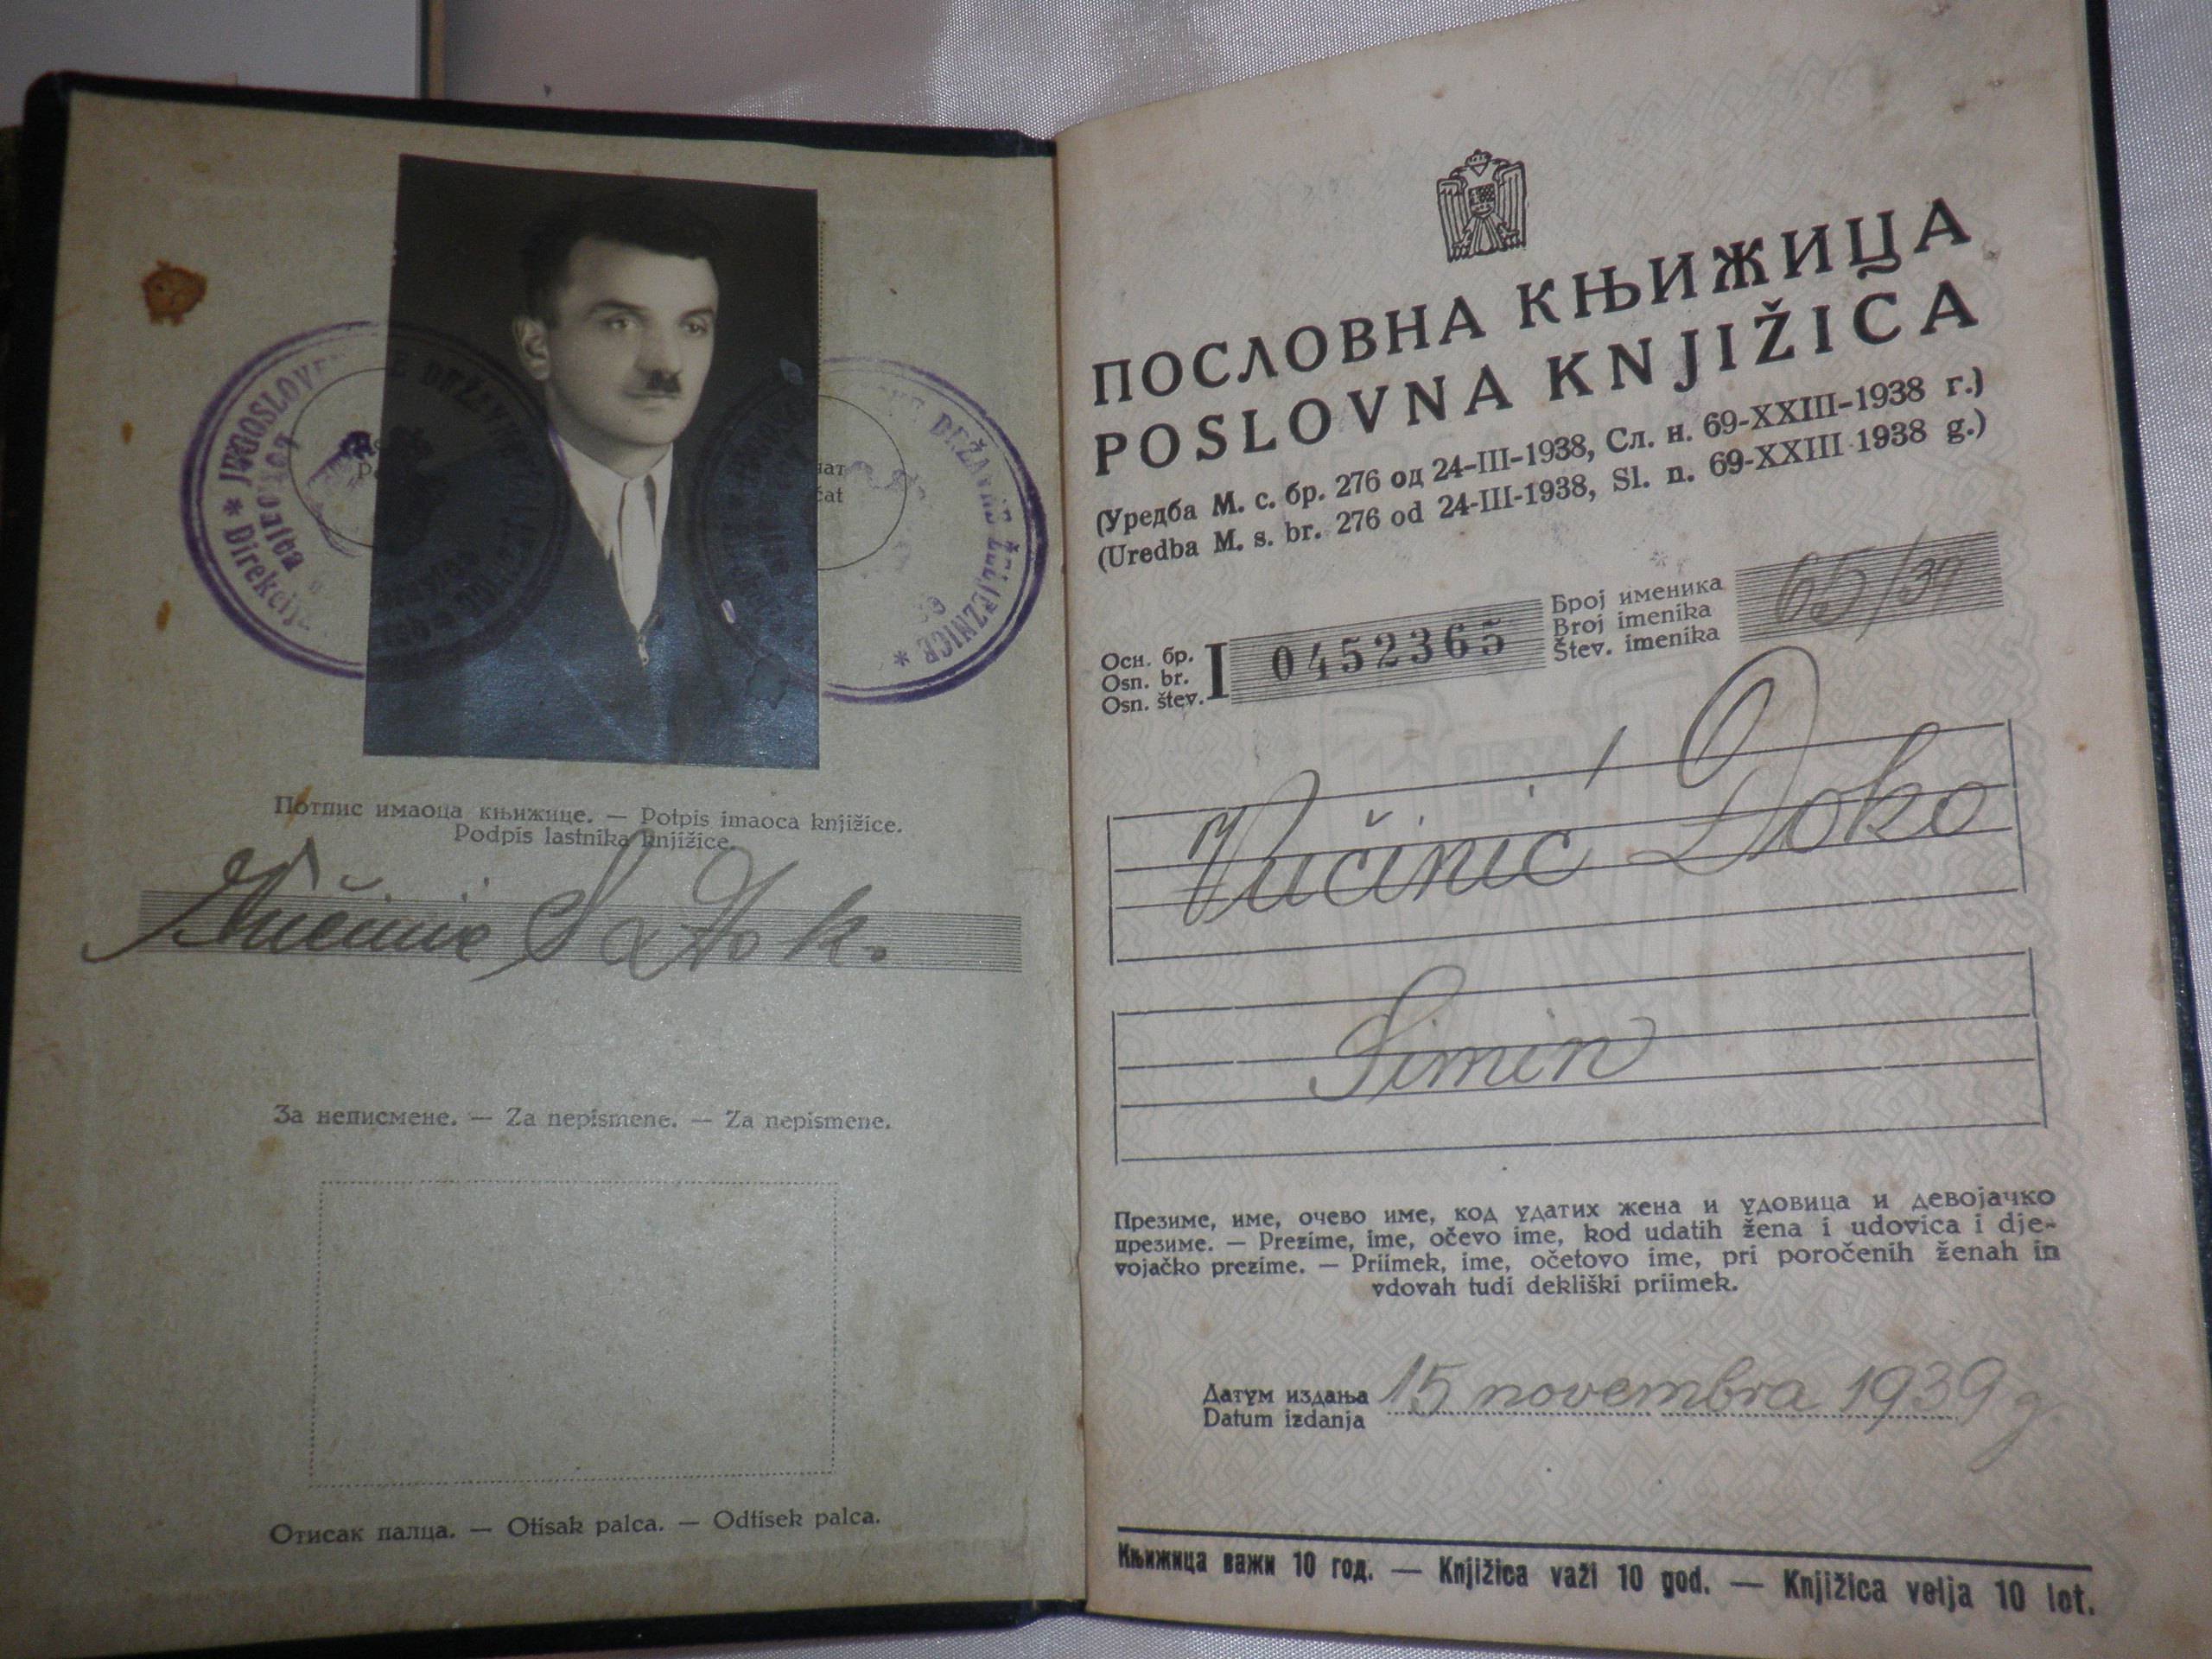 JUGOSLOVE
E DRŽAV
Direkcij
DRŽAVNE ŽELJEZNICE
чат
čat
Потпис имаоца књижице. — Potpis imaoca knjižice.
Podpis lastnika knjižice.
Vučinić
За неписмене. — Za nepismene. — Za nepismene.
Отисак палца. — Otisak palca. — Odtisek palca.
ПОСЛОВНА КЊИЖИЦА
POSLOVNA KNJIŽICA
(Уредба М. с. бр. 276 од 24-III-1938, Сл. н. 69-XXIII-1938 г.)
(Uredba M. s. br. 276 od 24-III-1938, Sl. n. 69-XXIII 1938 g.)
Осн. бр.
Osn. br.
Osn. štev.
I 0452365
Број именика
Broj imenika
Štev. imenika
65/39
Vučinić Doko
Simin
Презиме, име, очево име, код удатих жена и удовица и девојачко
презиме. — Prezime, ime, očevo ime, kod udatih žena i udovica i dje-
vojačko prezime. — Priimek, ime, očetovo ime, pri poročenih ženah in
vdovah tudi dekliški priimek.
Датум издања
Datum izdanja
15 novembra 1939 g
Књижица важи 10 год. — Knjižica važi 10 god. — Knjižica velja 10 let.